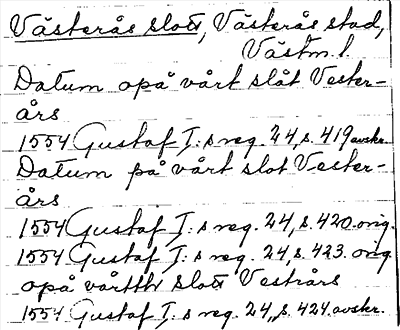 Västerås slott, Västerås stad,
Västm. l.
Datum opå vårt slåt Vester-
års
1554 Gustaf I:s reg. 24, s. 419 avskr.
Datum på vårt slot Vester-
års
1554 Gustaf I:s reg. 24, s. 420. orig.
1554 Gustaf I:s reg. 24, s. 423. orig
opå vårtthr slott Vestrårs
1554 Gustaf I:s reg. 24, s. 424. avskr.